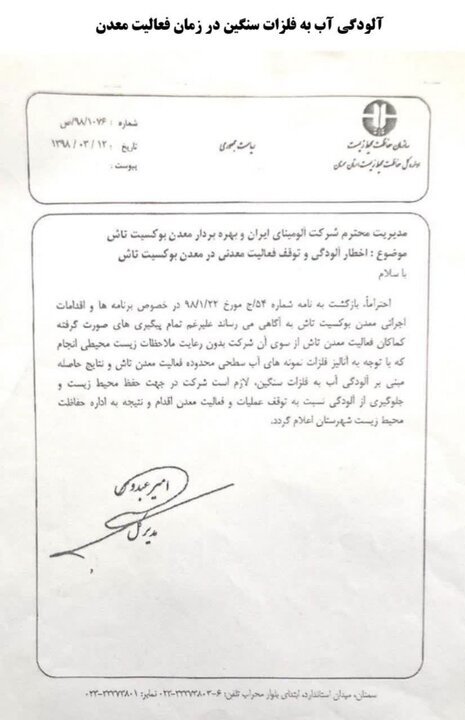 آلودگی آب به فلزات سنگین در زمان فعالیت معدن
ریاست جمهوری
سازمان حفاظت محیط زیست
اداره کل حفاظت محیط زیست استان سمنان
شماره : ۹۸/۱۰۷۶/ص
تاریخ : ۱۳۹۸ / ۰۳ / ۱۲
پیوست :
مدیریت محترم شرکت آلومینای ایران و بهره بردار معدن بوکسیت تاش
موضوع : اخطار آلودگی و توقف فعالیت معدنی در معدن بوکسیت تاش
با سلام
احتراماً، بازگشت به نامه شماره ۵۴/ج مورخ ۹۸/۱/۲۲ در خصوص برنامه ها و اقدامات
اجرائی معدن بوکسیت تاش به آگاهی می رساند علیرغم تمام پیگیری های صورت گرفته
کماکان فعالیت معدن تاش از سوی آن شرکت بدون رعایت ملاحظات زیست محیطی انجام
که با توجه به آنالیز فلزات نمونه های آب سطحی محدوده فعالیت معدن تاش و نتایج حاصله
مبنی بر آلودگی آب به فلزات سنگین، لازم است شرکت در جهت حفظ محیط زیست و
جلوگیری از آلودگی نسبت به توقف عملیات و فعالیت معدن اقدام و نتیجه به اداره حفاظت
محیط زیست شهرستان اعلام گردد.
امیر عبدوس
مدیر کل
سمنان، میدان استاندارد، ابتدای بلوار محراب تلفن: ۶-۳۳۲۷۳۸۰۳-۰۲۳ نمابر: ۳۳۲۷۳۸۰۱-۰۲۳